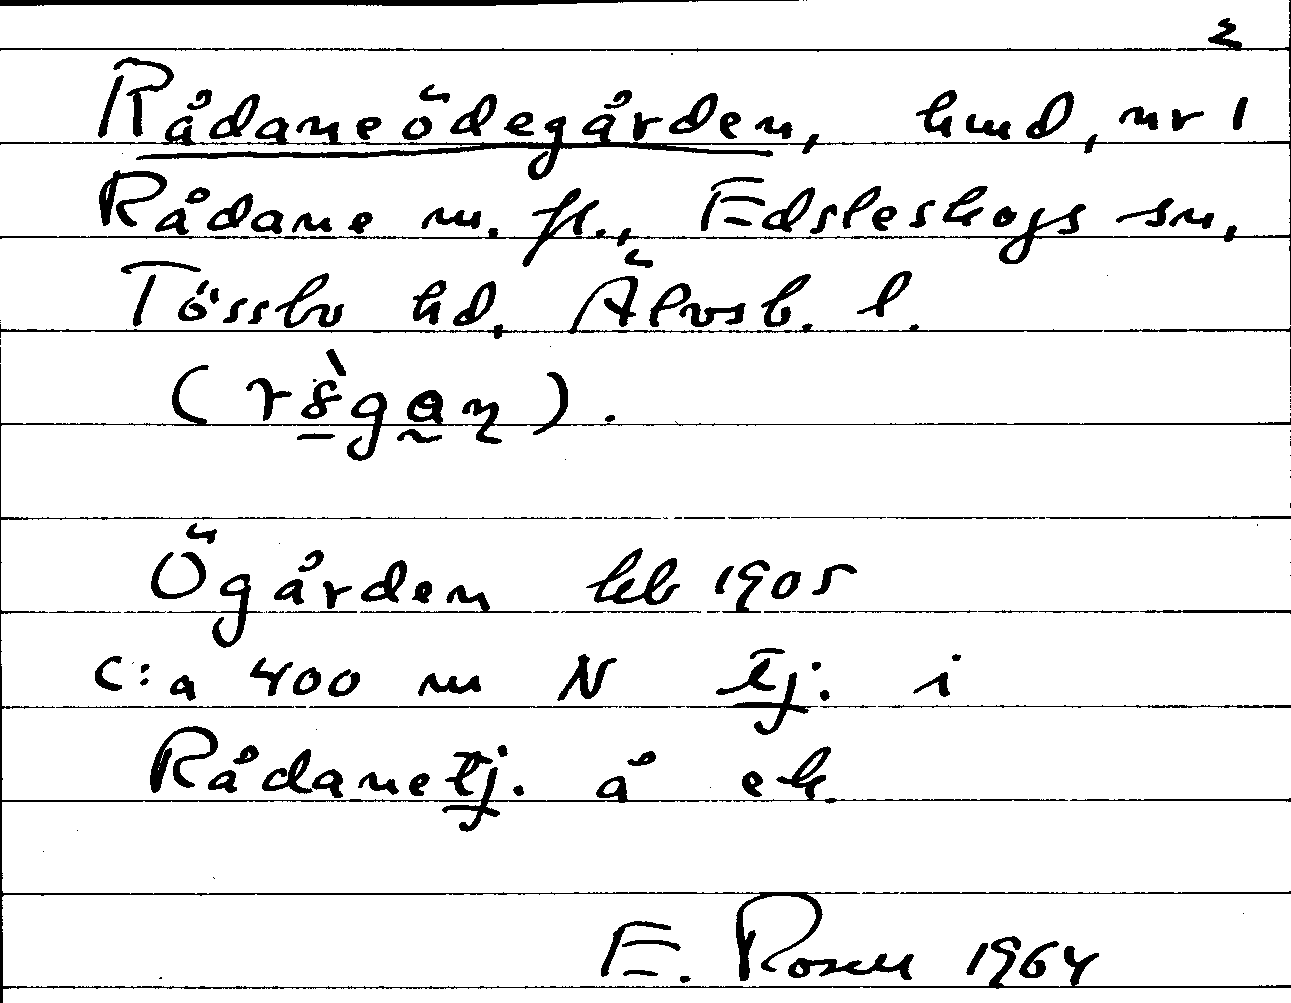 2
Rådaneödegården, hmd, nr 1
Rådane m. fl., Edsleskogs sn,
Tössbo hd, Älvsb. l.
Ögården hb 1905
c:a 400 m N tj. i
Rådanetj. å ek.
E. Rosen 1964